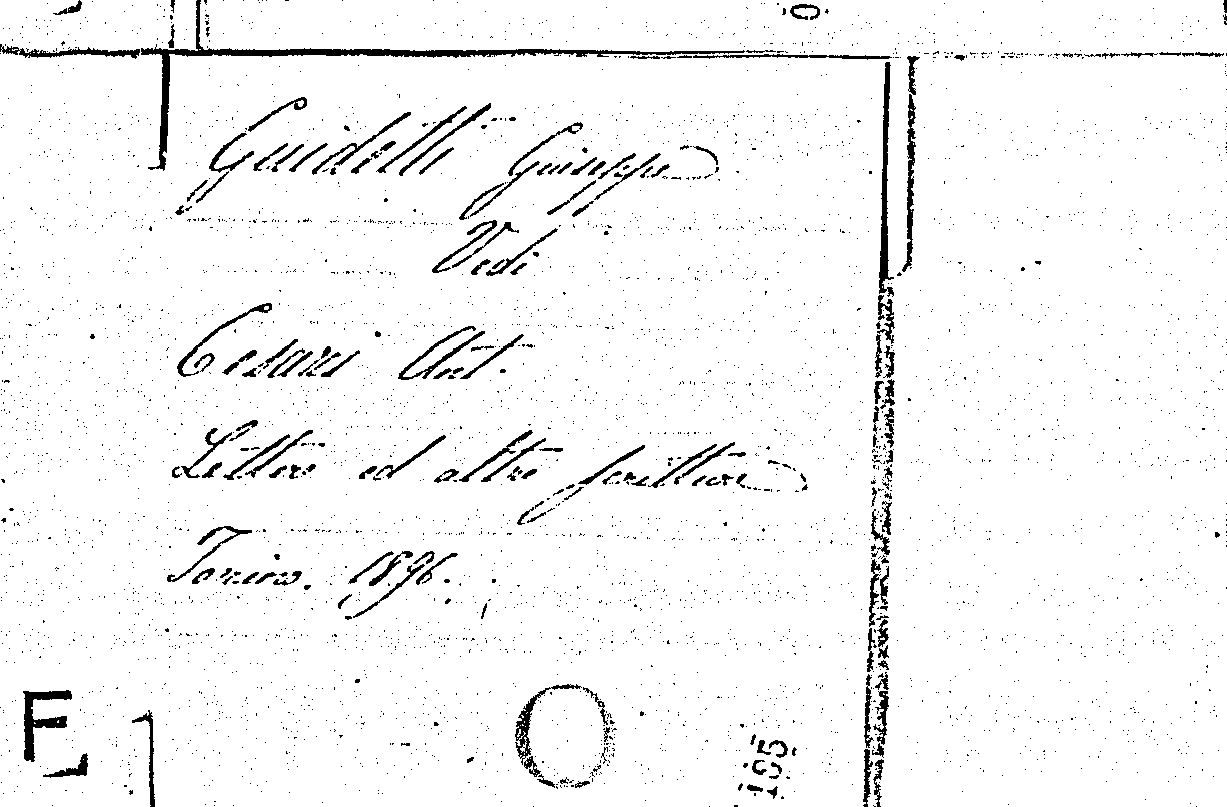 Guidetti Giuseppe
Vedi
Cesari Ant.
Lettere ed altre scritture
Torino. 1896.